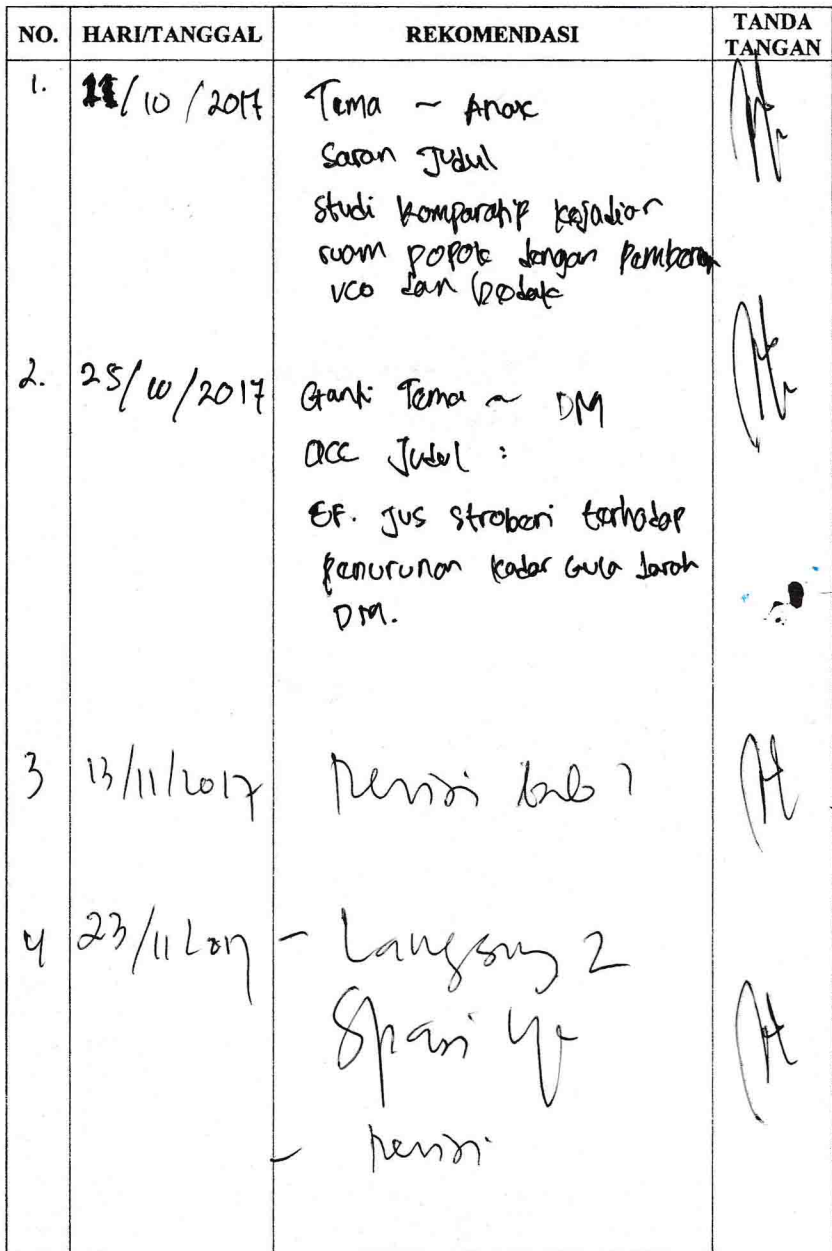 NO. HARI/TANGGAL REKOMENDASI TANDA TANGAN
1. 11/10/2017 Tema ~ Anak
Saran Judul
Studi komparatif kejadian
ruam popok dengan pemberian
VCO dan bedak
2. 25/10/2017 Ganti Tema ~ DM
acc Judul :
EF. Jus stroberi terhadap
penurunan kadar Gula darah
DM.
3 13/11/2017 Revisi bab 1
4 23/11 2017 - Langsung 2
Spasi ya
- Revisi